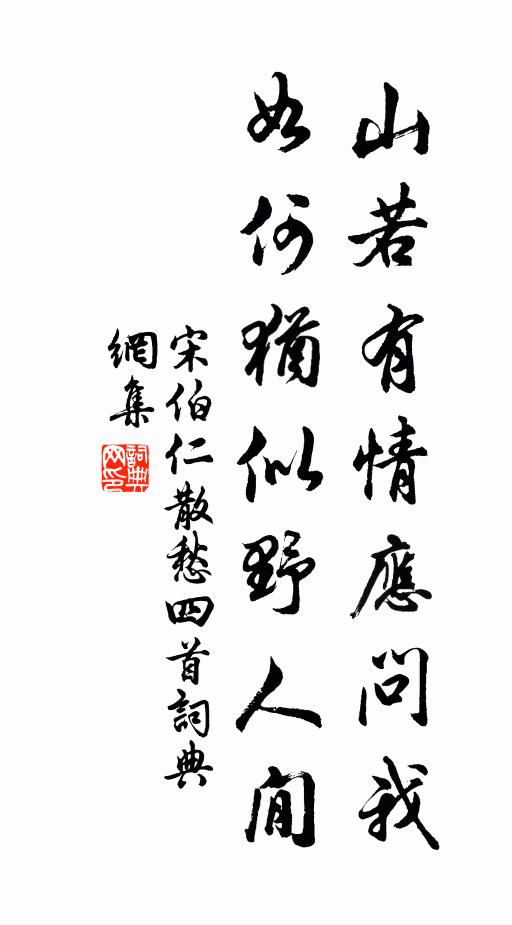 山若有情應問我
如何猶似野人閒
宋伯仁散愁四首詞典
網集
詞典
网印